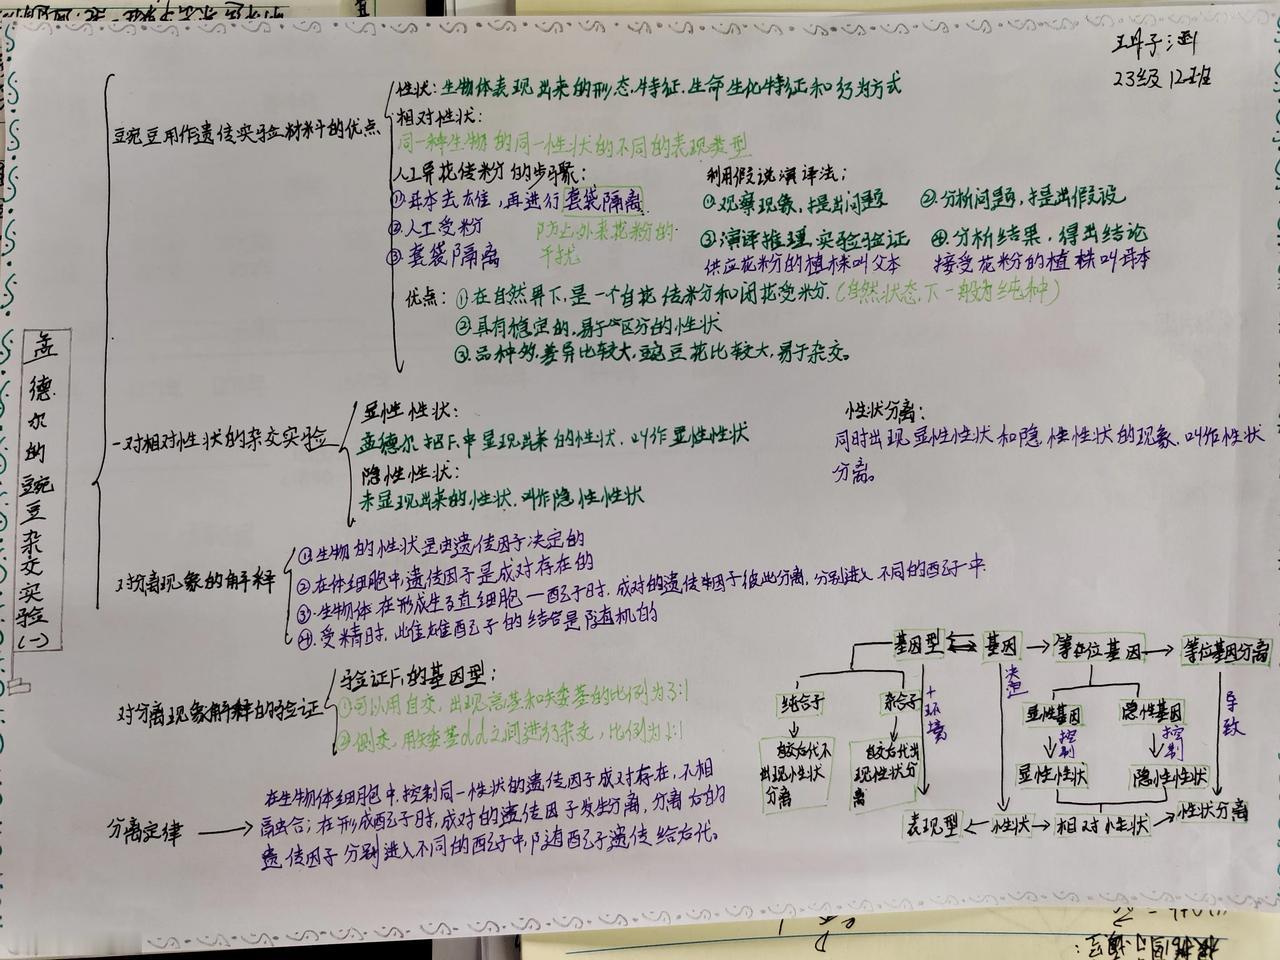 23级 12班
孟德尔的豌豆杂交实验(一)
豌豆用作遗传实验材料的优点
性状:生物体表现出来的形态.特征.生命生化特征和行为方式
相对性状:
同一种生物的同一性状的不同的表现类型
人工异花传粉的步骤:
①母本去雄,再进行套袋隔离
②人工受粉
防止外来花粉的
干扰
③套袋隔离
利用假说演译法;
①观察现象,提出问题 ②分析问题,提出假设
③演译推理.实验验证 ④.分析结果,得出结论
供应花粉的植株叫父本 接受花粉的植株叫母本
优点:①在自然界下,是一个自花传粉和闭花受粉.(自然状态下一般为纯种)
②具有稳定的,易于区分的性状
③.品种多,差异比较大,豌豆花比较大,易于杂交。
一对相对性状的杂交实验
显性性状:
孟德尔把F₁中显现出来的性状.叫作显性性状
隐性性状:
未显现出来的性状.叫作隐性性状
性状分离:
同时出现显性性状和隐性性状的现象.叫作性状
分离。
对分离现象的解释
①.生物的性状是由遗传因子决定的
②在体细胞中,遗传因子是成对存在的
③.生物体在形成生殖细胞—配子时,成对的遗传因子彼此分离,分别进入不同的配子中.
④.受精时,雌雄配子的结合是随机的
对分离现象解释的验证
验证F₁的基因型;
①可以用自交,出现高茎和矮茎的比例为3:1
②侧交,用矮茎dd之间进行杂交,比例为1:1
分离定律
在生物体细胞中,控制同一性状的遗传因子成对存在,不相
融合;在形成配子时,成对的遗传因子发生分离,分离后的
遗传因子分别进入不同的配子中,随配子遗传给后代.
基因型 基因 等位基因 等位基因分离
纯合子 杂合子 +环境 决定 显性基因 隐性基因 导致
控制 控制
自交后代不
出现性状
分离
自交后代出
现性状分
离
显性性状 隐性性状
表现型 性状 相对性状 性状分离